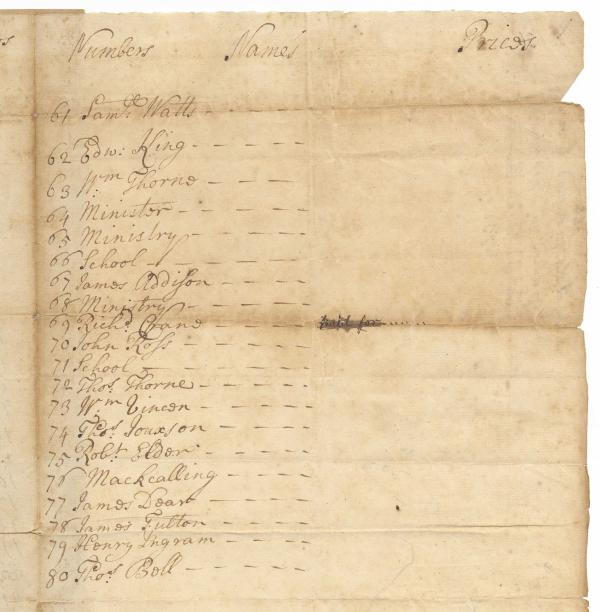 Numbers Names Prices
61 Sam.l Watts - - - - -
62 Edw: King - - - - -
63 W.m Thorne - - - - -
64 Minister - - - - - -
65 Ministry - - - - -
66 School - - - - - -
67 James Addison - - - -
68 Ministry - - - - -
69 Rich.d Crane - - - - -
70 John Ross - - - - -
71 School - - - - - -
72 Tho.s Thorne - - - - -
73 W.m Vincen - - - - -
74 Tho.s - - - -
75 Rob.t Elder - - - - -
76 Mackcalling - - - -
77 James Dear - - - - -
78 James Fulton - - - -
79 Henry Ingram - - - -
80 Tho.s Bell - - - - -